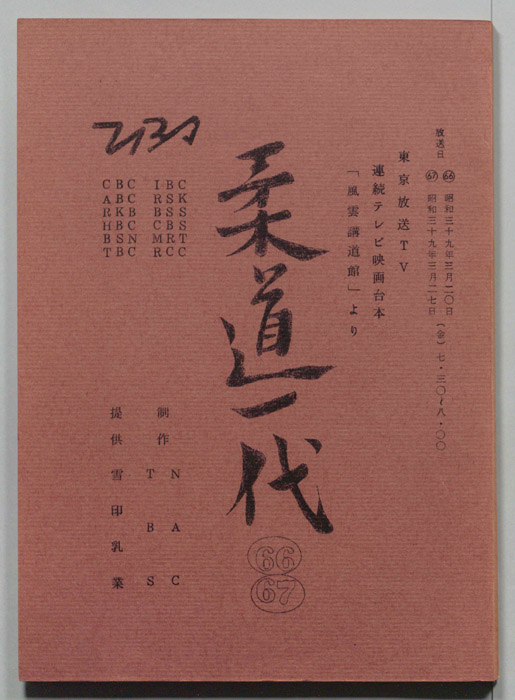 放送日
66 昭和三十九年三月二〇日
67 昭和三十九年三月二七日(金)七・三〇~八・〇〇
東京放送TV
連続テレビ映画台本
「風雲講道館」より
柔道一代
66
67
CBC IBC
ABC RSK
RKB BSS
HBC CBS
BSN MRT
TBC RCC
制作 NAC
TBS
提供 雪印乳業